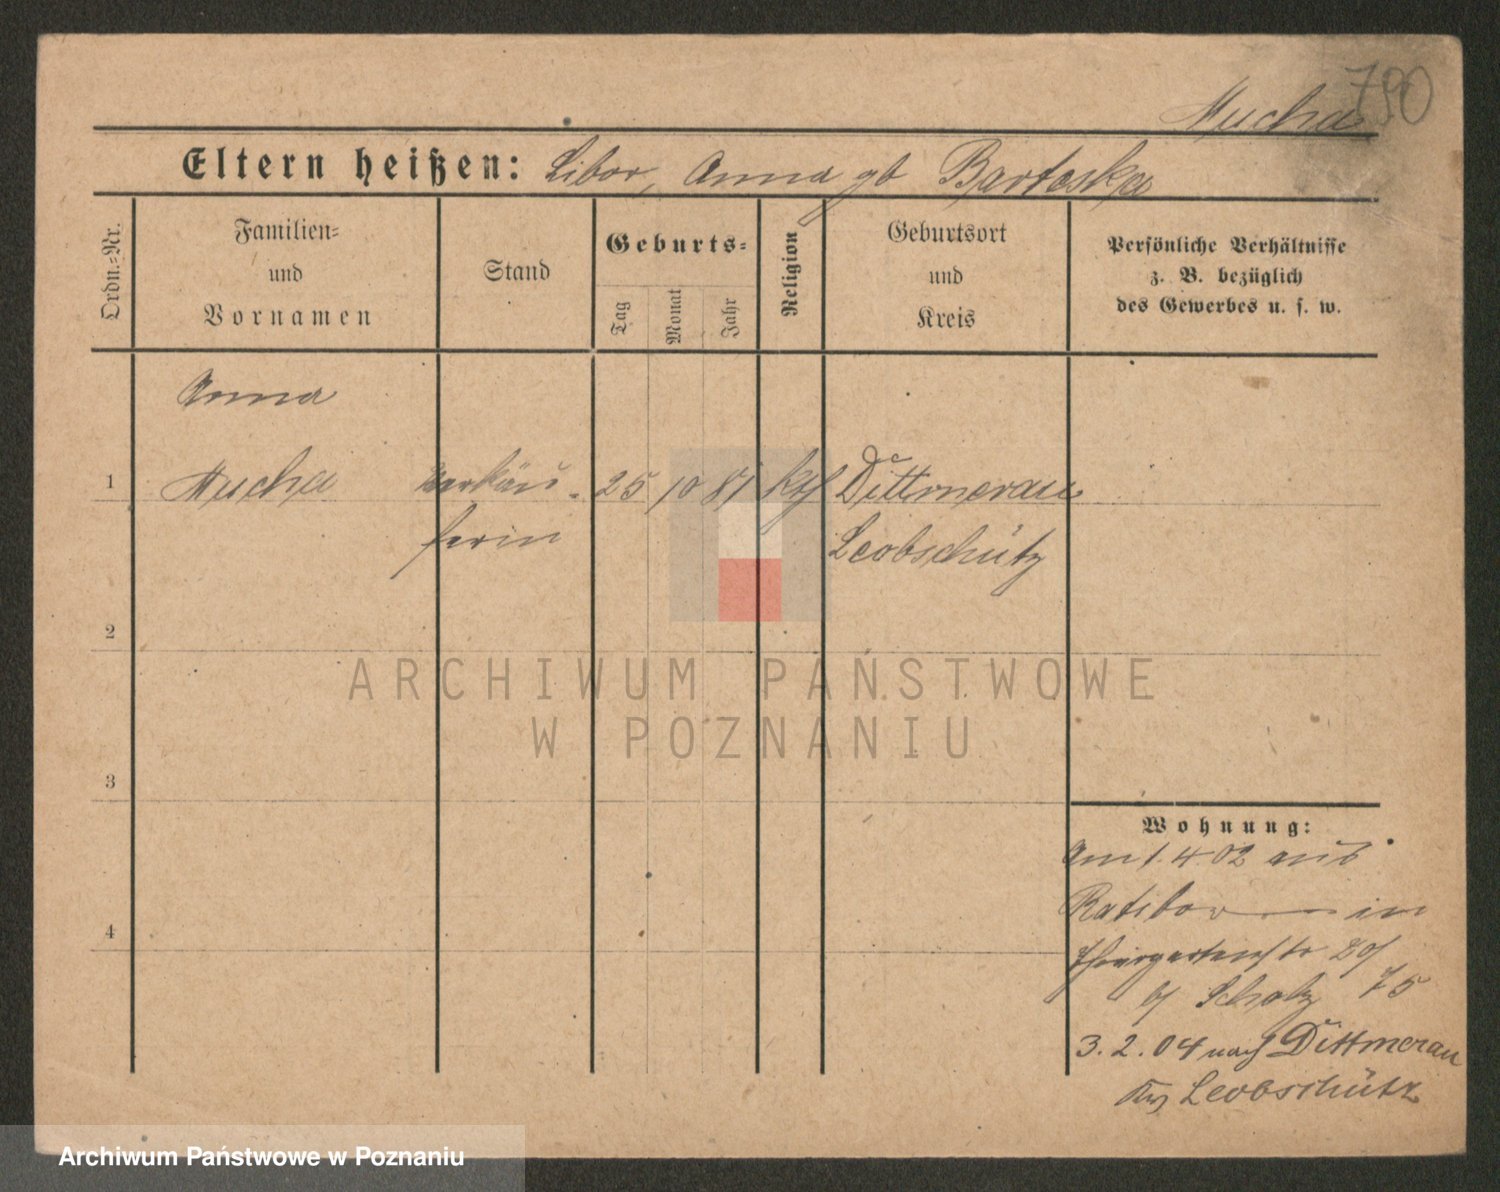 790
Mucha
Eltern heißen: Libor, Anna gb Bartoska
Ordn.=Nr.
Familien=
und
Vornamen
Stand
Geburts=
Tag
Monat
Jahr
Religion
Geburtsort
und
Kreis
Persönliche Verhältnisse
z. B. bezüglich
des Gewerbes u. s. w.
Anna
1 Mucha verkäu- 25 10 81 kth Dittmerau
ferin Leobschütz
2
ARCHIWUM PAŃSTWOWE
W POZNANIU
3
Wohnung:
am 1.4.02 aus
Ratibor in
4
b/ Scholz 75
3.2.04 nach Dittmerau
Leobschütz
Archiwum Państwowe w Poznaniu